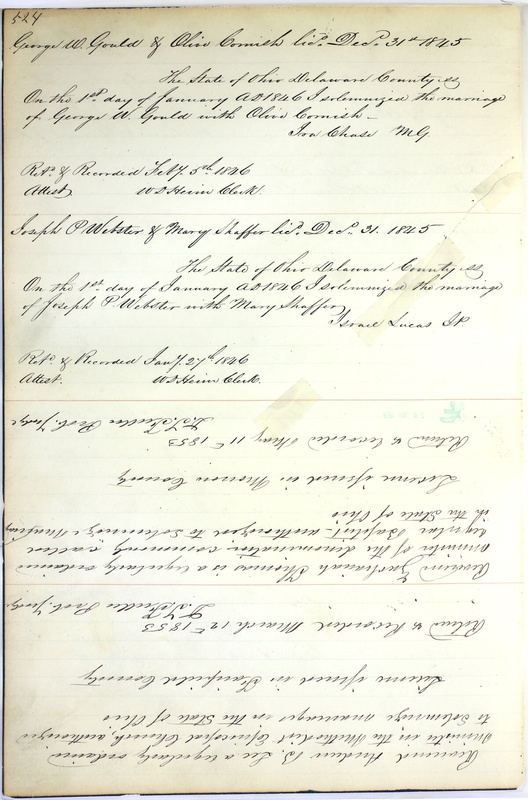 524
George W. Gould & Olive Cornish lic. Dec. 31st 1845
The State of Ohio Delaware County ss
On the 1st day of January AD 1846 I solemnized the marriage
of George W. Gould with Olive Cornish
Ira Chase M.G.
Retd & Recorded Feby 5th 1846
Attest W D Heim Clerk.
Joseph P. Webster & Mary Shaffer lic. Dec. 31. 1845
The State of Ohio Delaware County ss
On the 1st day of January AD 1846 I solemnized the marriage
of Joseph P. Webster with Mary Shaffer
Israel Lucas JP
Retd & Recorded Jany 27th 1846
Attest. W D Heim Clerk.
Reverend Andrew B. See a regularly ordained
Minister in the Methodist Episcopal Church authorized
to solemnize marriages in the State of Ohio
License issued in Fairfield County
Retind & Recorded March 12th 1853
Prob. Judge
Reverend Thomas is a regularly ordained
minister of the denomination commonly called
regular Baptist authorized to solemnize Marriages
in the State of Ohio
License issued in Morrow County
Retind & Recorded May 11th 1853
Prob. Judge